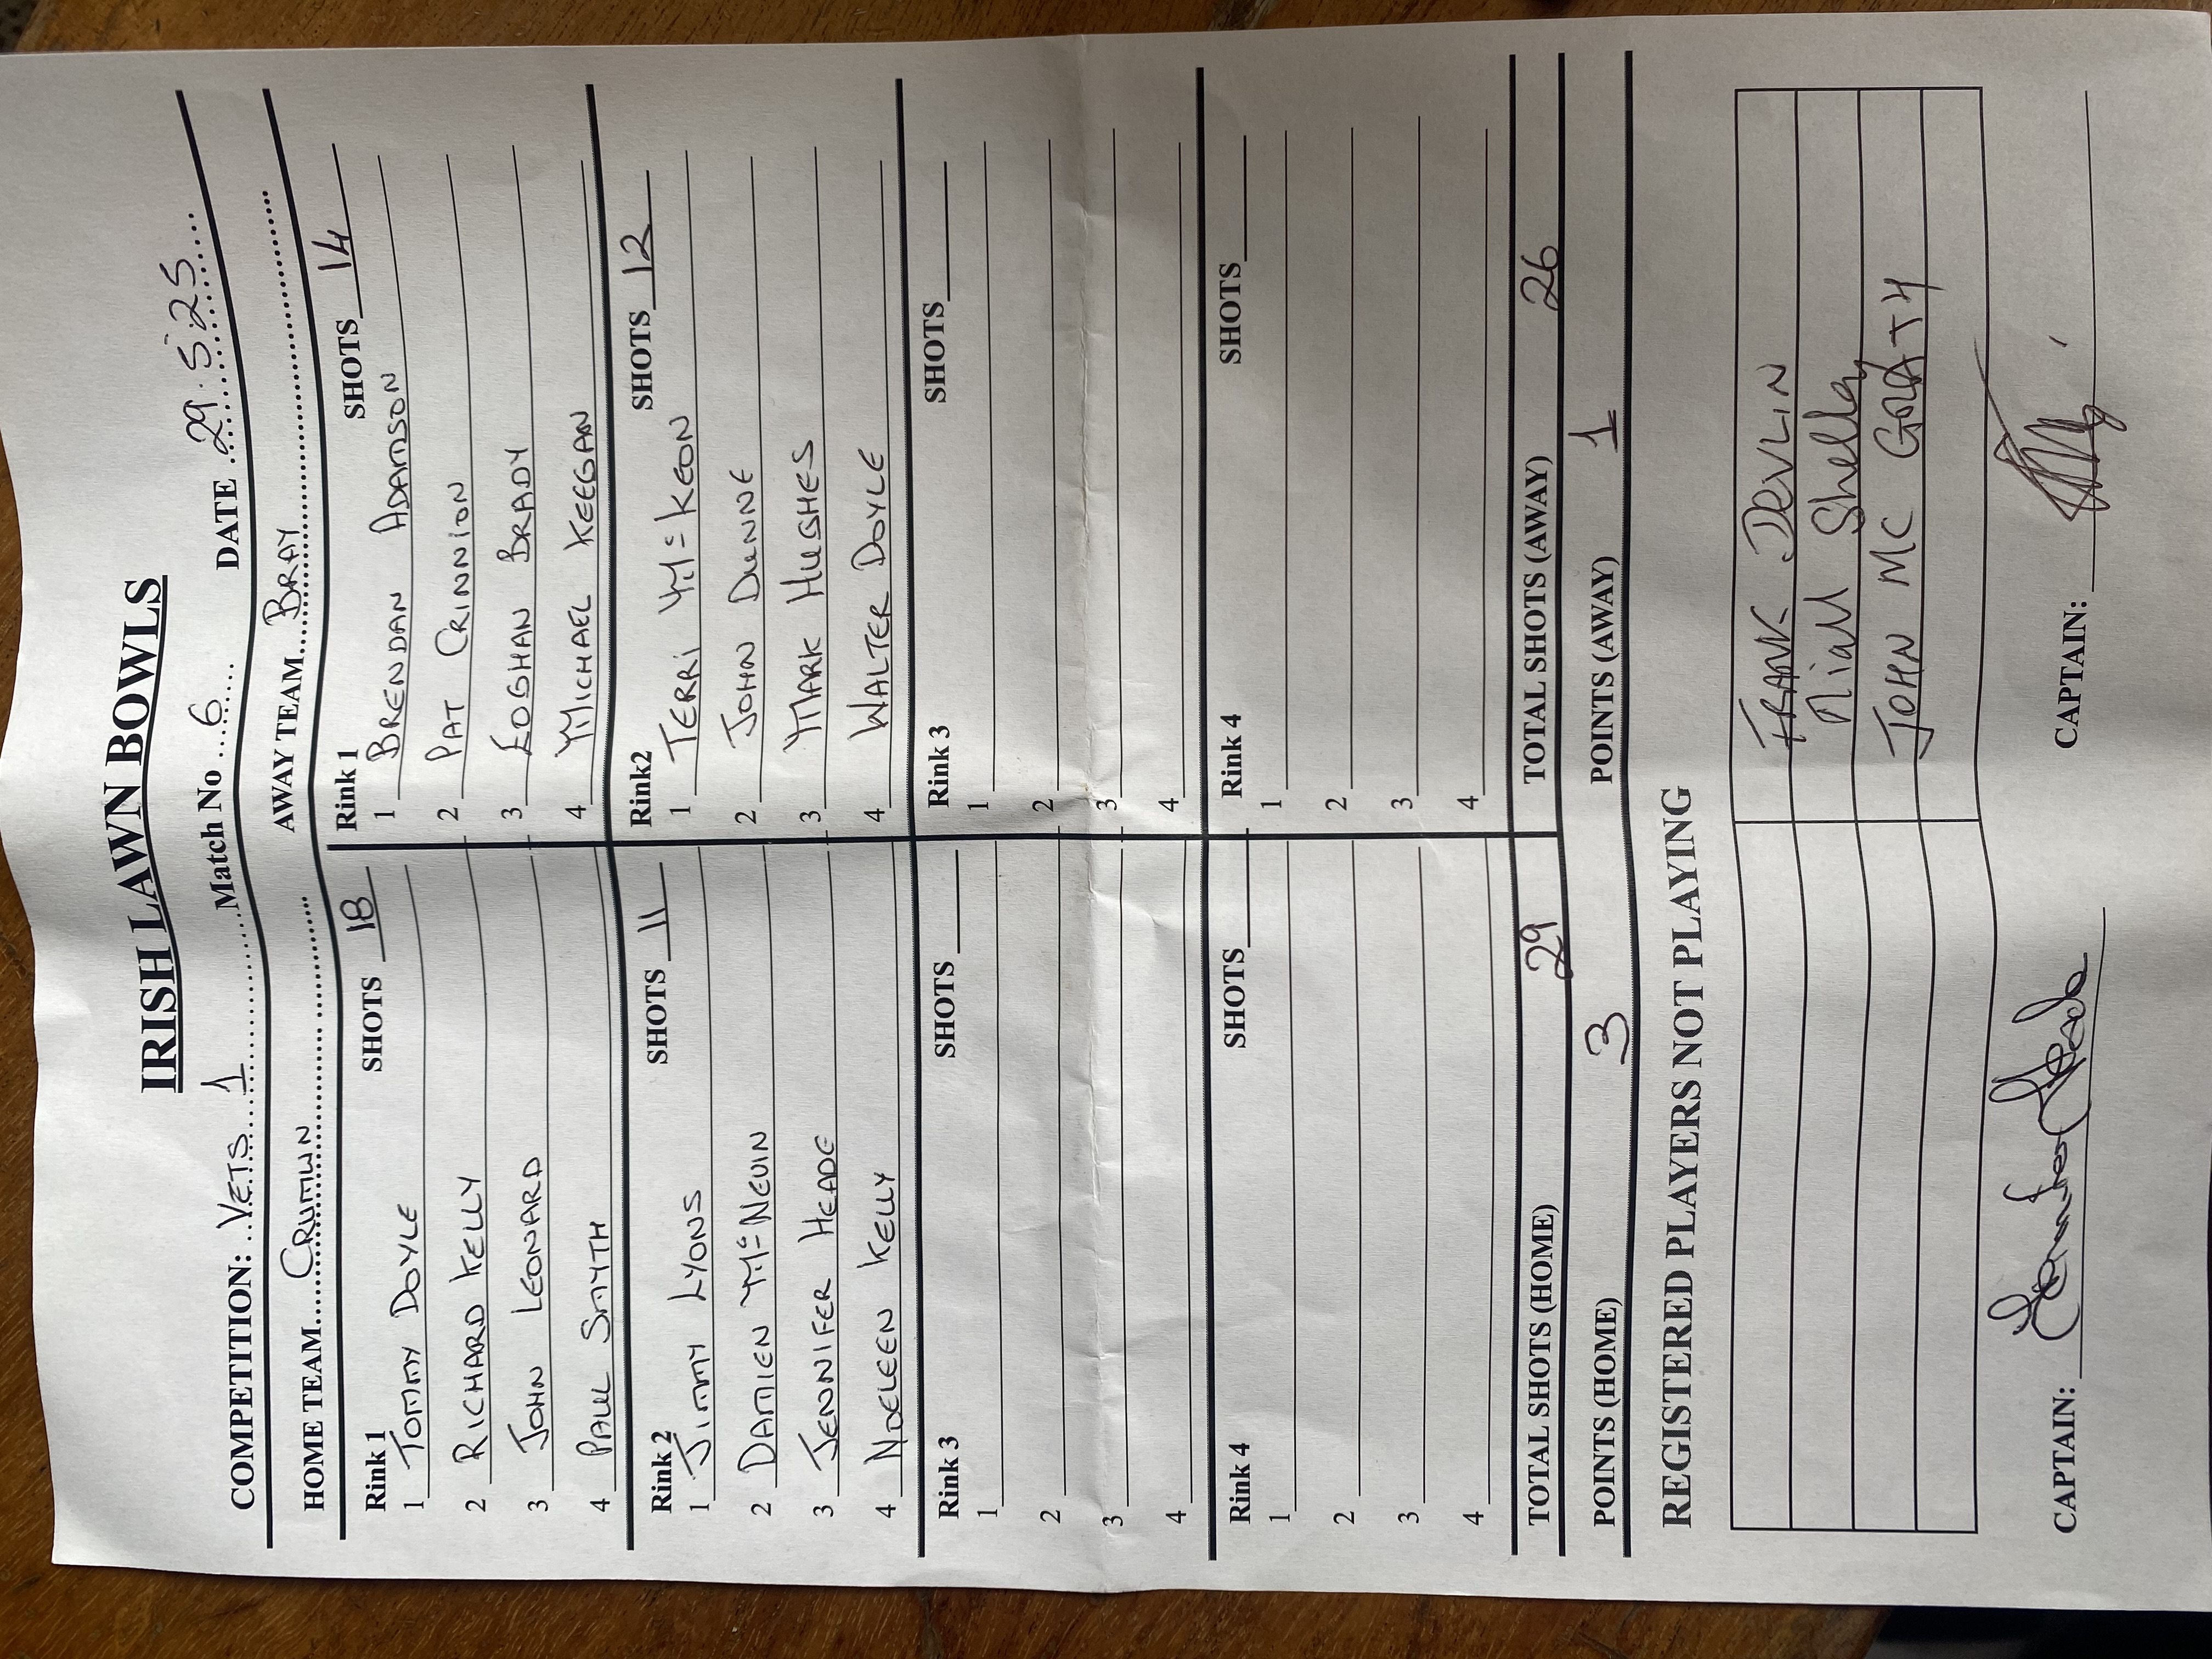 IRISH LAWN BOWLS
COMPETITION: VETS 1 Match No 6 DATE 29.5.25
HOME TEAM CRUMLIN AWAY TEAM BRAY
Rink 1 SHOTS 18 Rink 1 SHOTS 14
1 TOMMY DOYLE 1 BRENDAN ADAMSON
2 RICHARD KELLY 2 PAT CRINNION
3 JOHN LEONARD 3 EOGHAN BRADY
4 PAUL SMYTH 4 MICHAEL KEEGAN
Rink 2 SHOTS 11 Rink2 SHOTS 12
1 JIMMY LYONS 1 TERRI Mc KEON
2 DAMIEN Mc NEVIN 2 JOHN DUNNE
3 JENNIFER HEADE 3 MARK HUGHES
4 NOELEEN KELLY 4 WALTER DOYLE
Rink 3 SHOTS Rink 3 SHOTS
1 1
2 2
3 3
4 4
Rink 4 SHOTS Rink 4 SHOTS
1 1
2 2
3 3
4 4
TOTAL SHOTS (HOME) 29 TOTAL SHOTS (AWAY) 26
POINTS (HOME) 3 POINTS (AWAY) 1
REGISTERED PLAYERS NOT PLAYING
FRANK DEVLIN
Niall Shelley
JOHN MC GOLDTY
CAPTAIN: Jennifer Heade CAPTAIN: